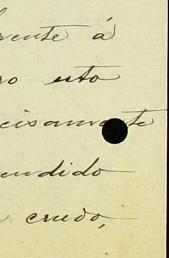 rente á
ro esto
cisamente
endido
credo,